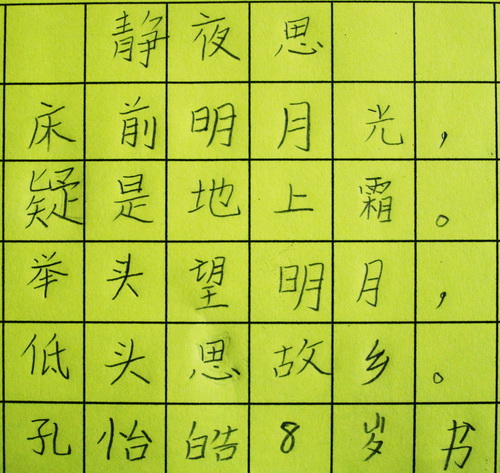 静夜思
床前明月光，
疑是地上霜。
举头望明月，
低头思故乡。
孔怡皓8岁书